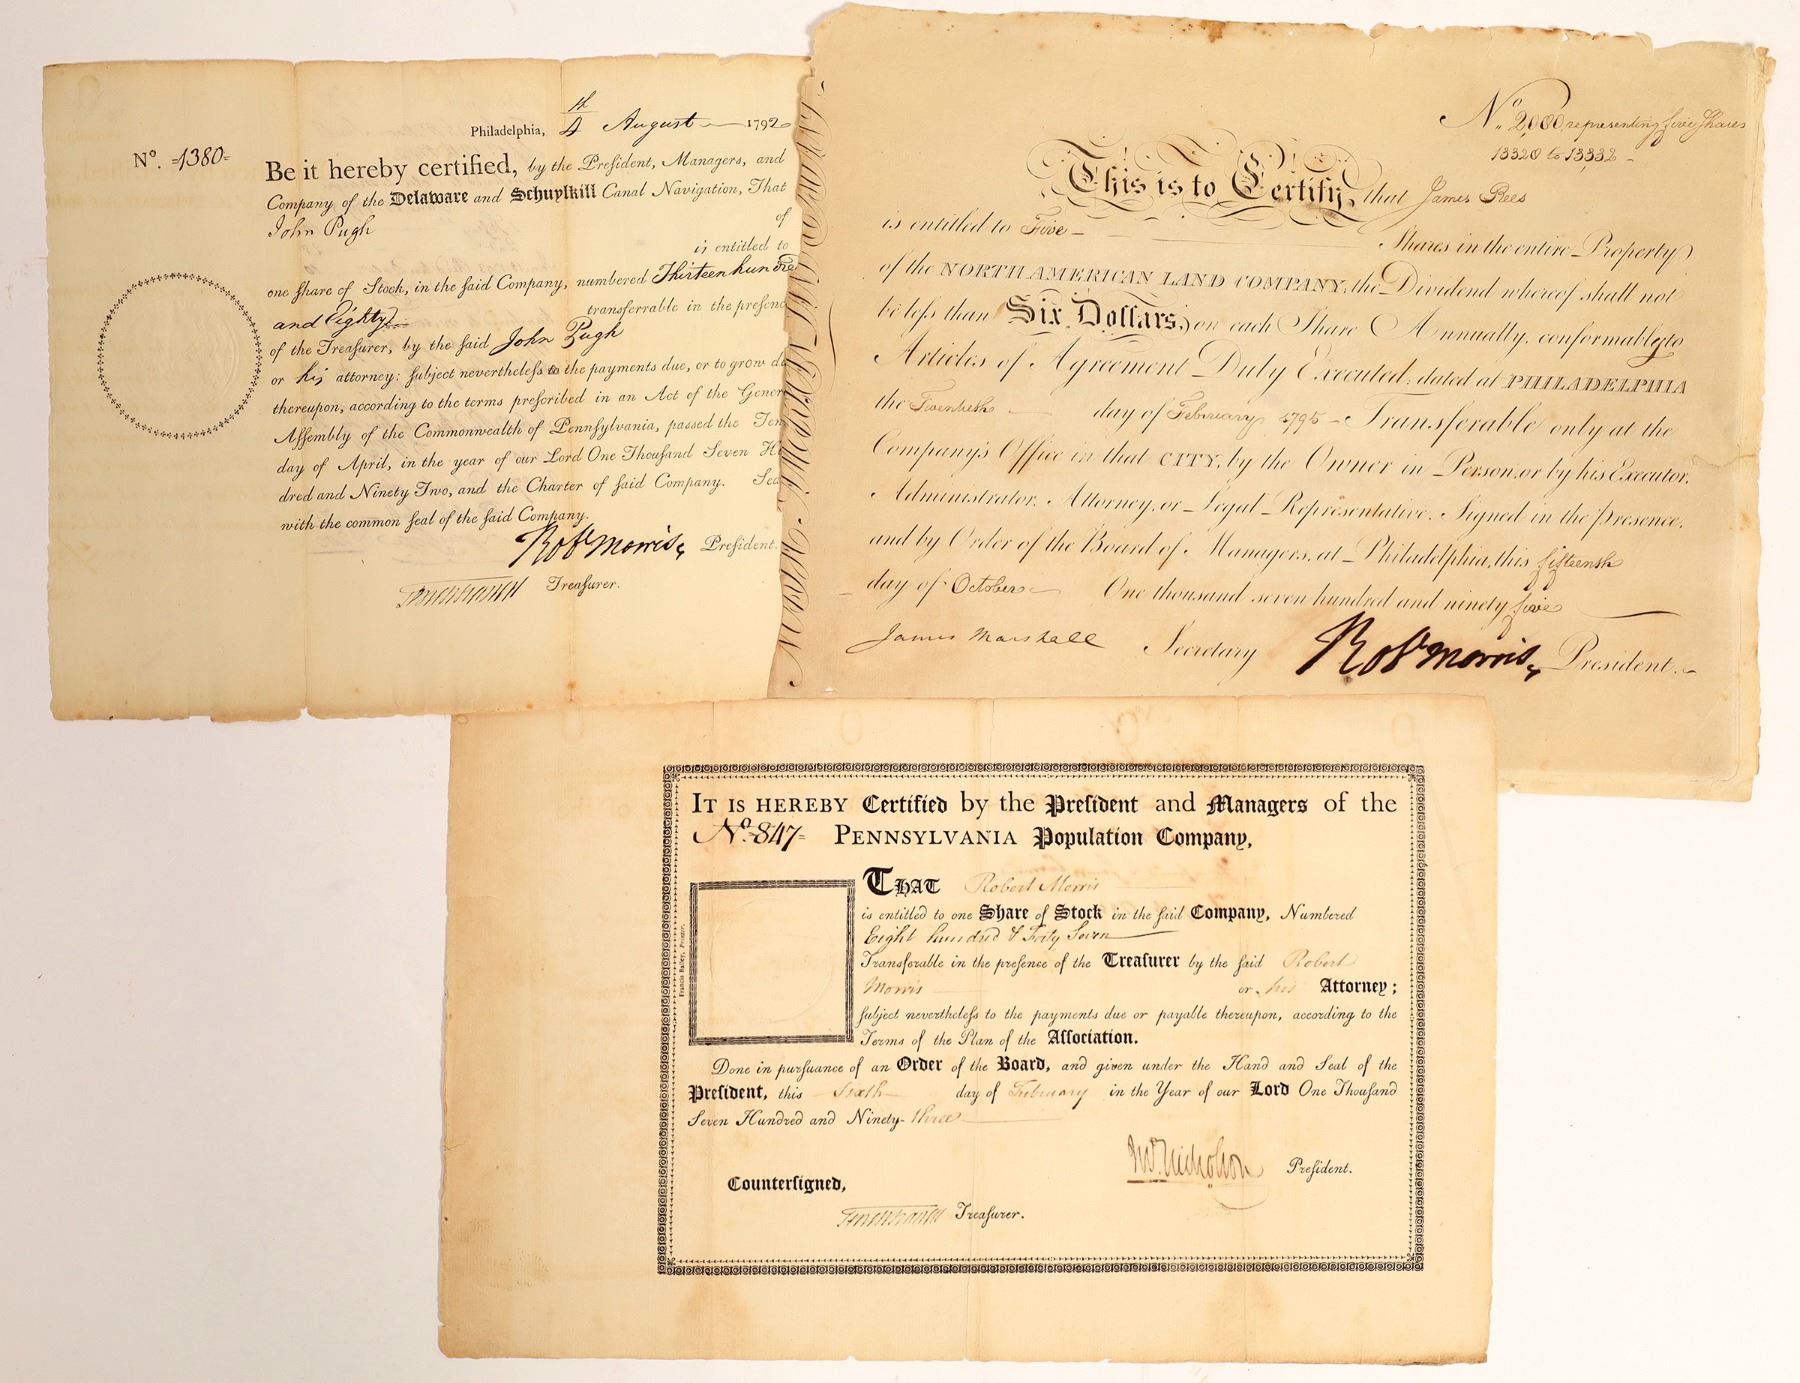 Philadelphia, 4th August 1792
No. =1380=
Be it hereby certified, by the President, Managers, and
Company of the Delaware and Schuylkill Canal Navigation, That
John Pugh of
is entitled to
one ſhare of Stock, in the ſaid Company, numbered Thirteen hundre
and Eighty transferrable in the preſenc
of the Treaſurer, by the ſaid John Pugh
or his attorney: ſubject nevertheleſs to the payments due, or to grow d
thereupon, according to the terms preſcribed in an Act of the Gener
Aſſembly of the Commonwealth of Pennſylvania, paſſed the Ten
day of April, in the year of our Lord One Thouſand Seven H
dred and Ninety Two, and the Charter of ſaid Company. Sea
with the common ſeal of the ſaid Company.
Robt Morris President.
Treaſurer.
No. 2,000 representing five Shares
13320 to 13332
This is to Certify, that James Rees
is entitled to Five Shares in the entire Property
of the NORTH AMERICAN LAND COMPANY, the Dividend whereof shall not
be leſs than Six Dollars, on each Share Annually, conformably to
Articles of Agreement Duly Executed; dated at PHILADELPHIA
the Twentieth day of February 1795 Transferable only at the
Company's Office in that CITY, by the Owner in Person, or by his Executor,
Administrator, Attorney, or Legal Representative. Signed in the presence,
and by Order of the Board of Managers, at Philadelphia, this fifteenth
day of October One thousand seven hundred and ninety five
James Marshall Secretary Robt Morris President.
IT IS HEREBY Certified by the Preſident and Managers of the
No. =847= PENNSYLVANIA Population Company,
THAT Robert Morris
is entitled to one Share of Stock in the ſaid Company, Numbered
Eight hundred & Forty Seven
Transferable in the preſence of the Treaſurer by the ſaid Robert
Morris or his Attorney;
ſubject nevertheleſs to the payments due or payable thereupon, according to the
Terms of the Plan of the Aſſociation.
Francis Bailey, Printer.
Done in purſuance of an Order of the Board, and given under the Hand and Seal of the
Preſident, this Sixth day of February in the Year of our Lord One Thouſand
Seven Hundred and Ninety-three
Jno Nicholson Preſident.
Counterſigned,
Treaſurer.